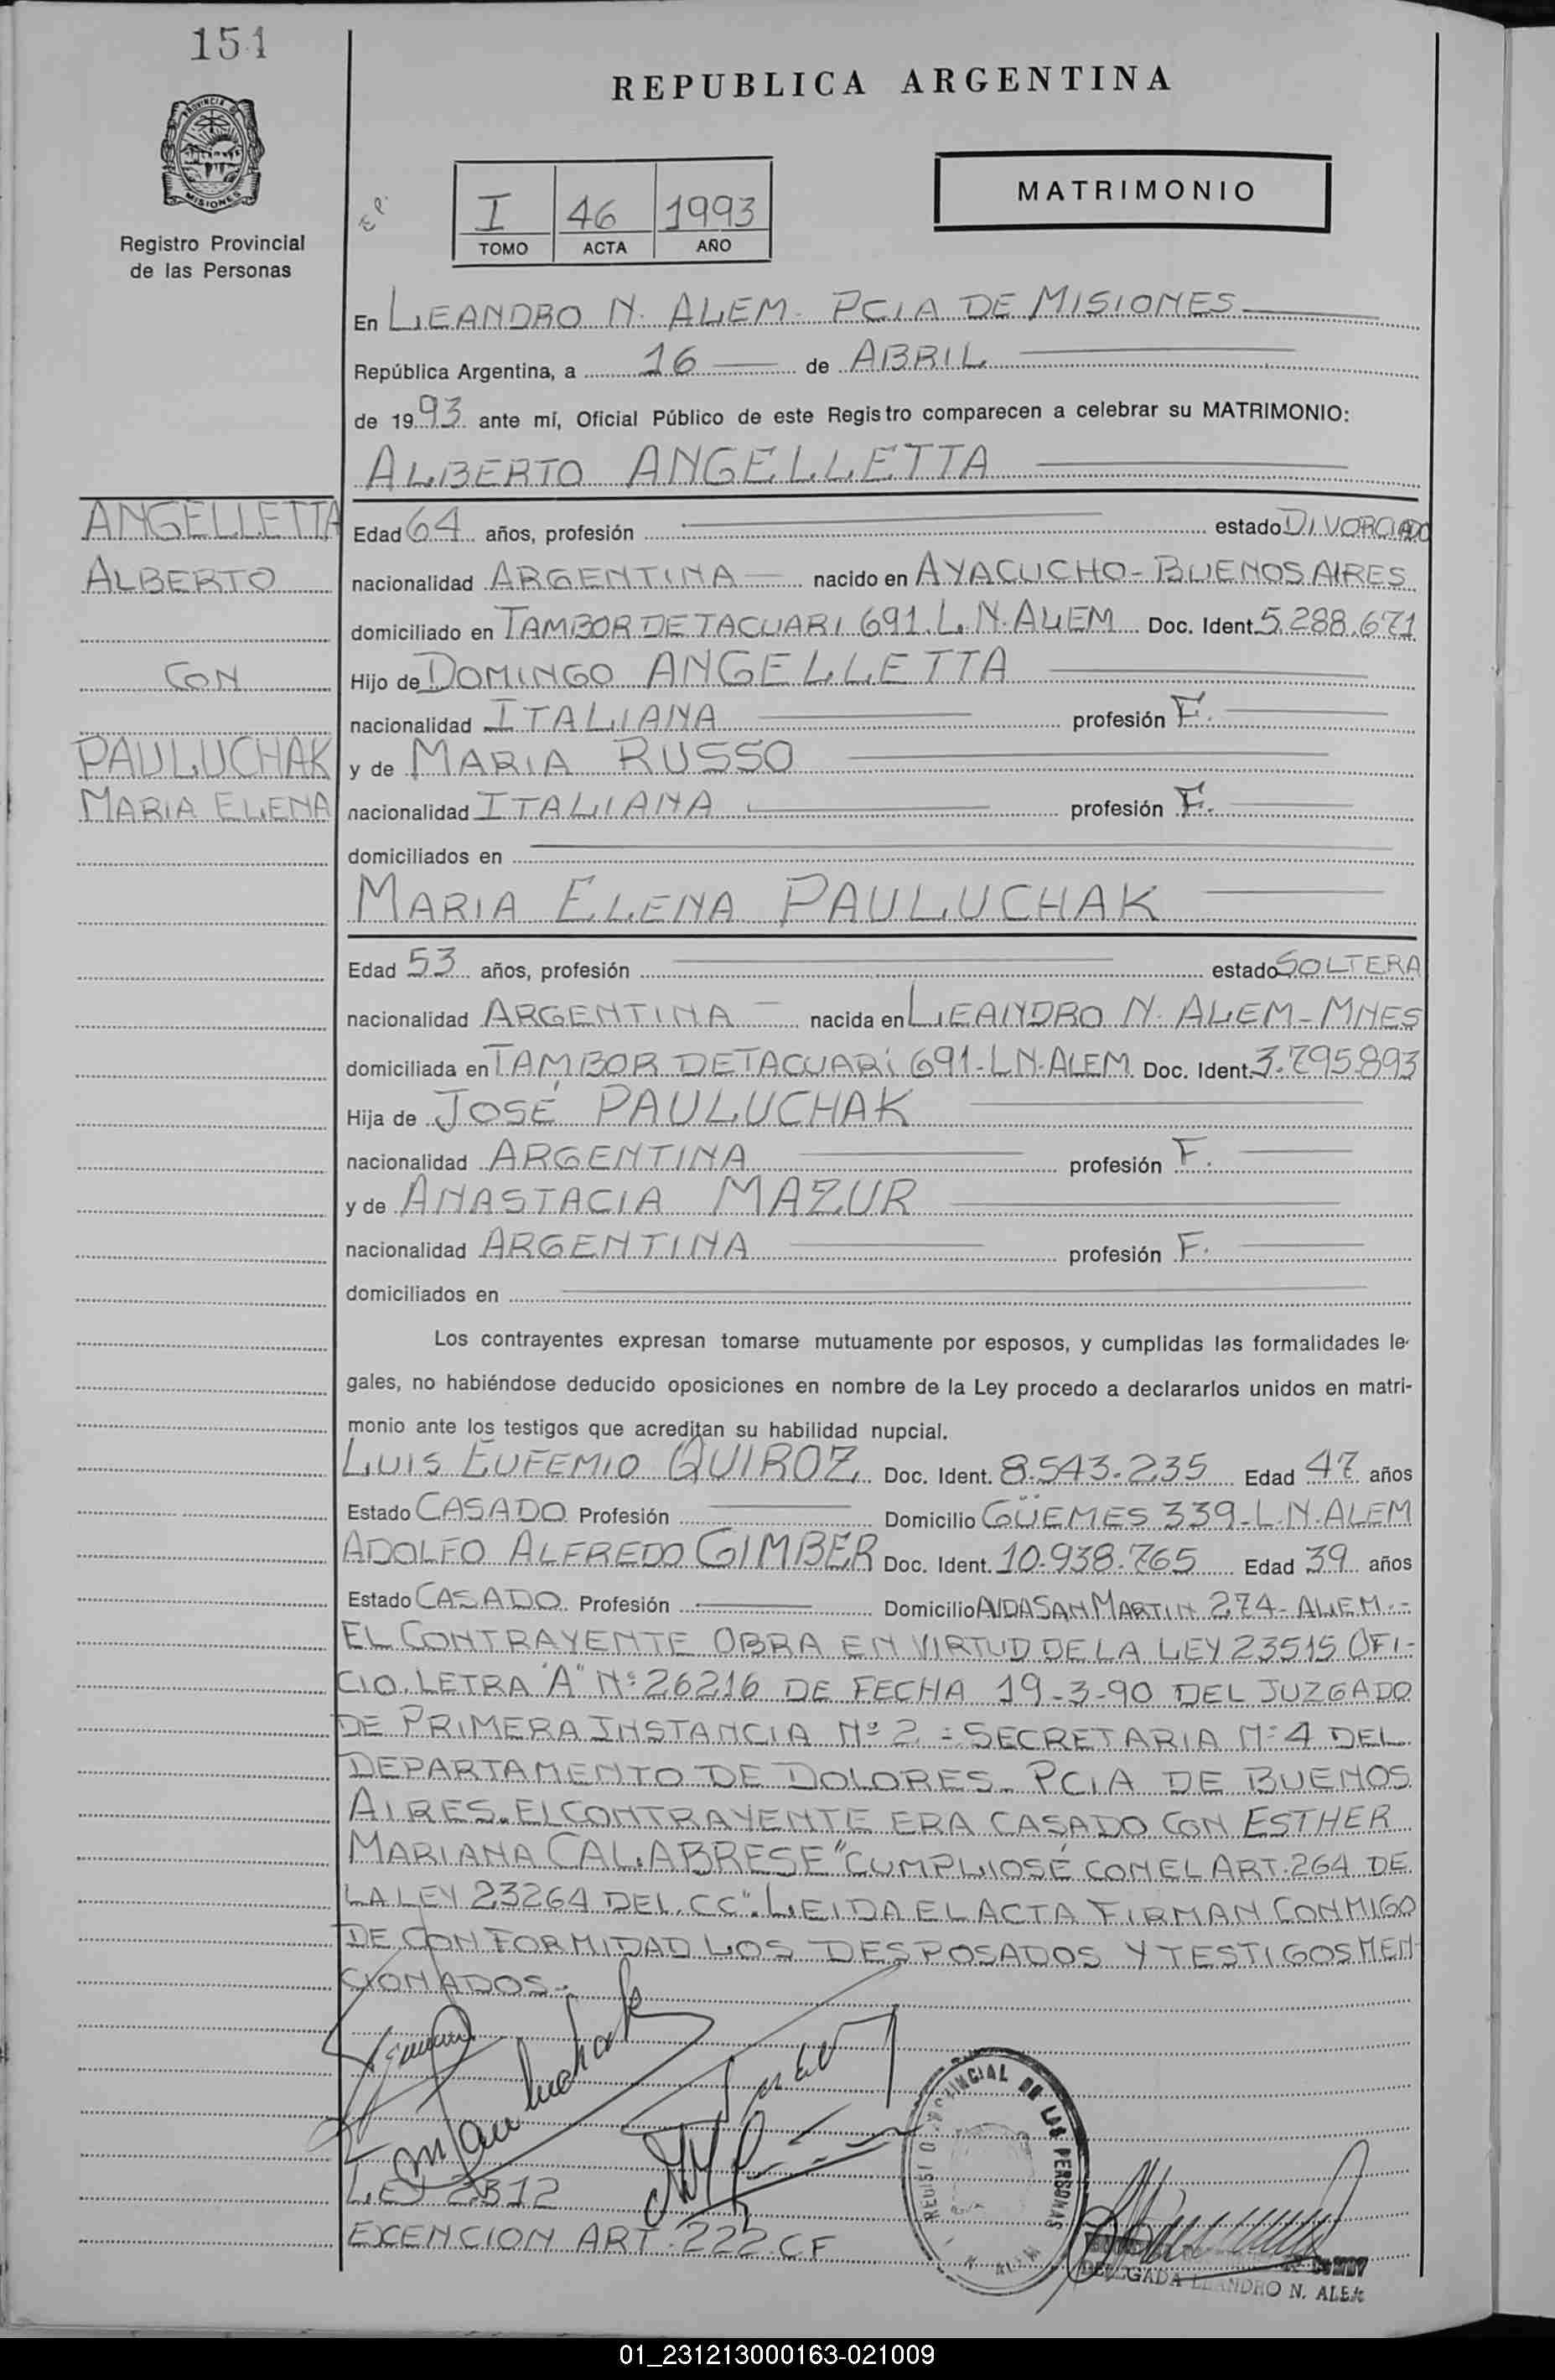 151
REPUBLICA ARGENTINA
PROVINCIA DE
MISIONES
Registro Provincial
de las Personas
E P.
I 46 1993
TOMO ACTA AÑO
MATRIMONIO
En LEANDRO N. ALEM- PCIA DE MISIONES
República Argentina, a 16 de ABRIL
de 1993 ante mí, Oficial Público de este Registro comparecen a celebrar su MATRIMONIO:
ALBERTO ANGELLETTA
ANGELLETTA
ALBERTO
CON
PAULUCHAK
MARIA ELENA
Edad 64 años, profesión estado DIVORCIADO
nacionalidad ARGENTINA nacido en AYACUCHO-BUENOS AIRES
domiciliado en TAMBOR DE TACUARI 691.L.N.ALEM Doc. Ident. 5.288.671
Hijo de DOMINGO ANGELLETTA
nacionalidad ITALIANA profesión F.
y de MARIA RUSSO
nacionalidad ITALIANA profesión F.
domiciliados en
MARIA ELENA PAULUCHAK
Edad 53 años, profesión estado SOLTERA
nacionalidad ARGENTINA nacida en LEANDRO N. ALEM-MNES
domiciliada en TAMBOR DE TACUARí 691-L.N.ALEM Doc. Ident. 3.795.893
Hija de JOSÉ PAULUCHAK
nacionalidad ARGENTINA profesión F.
y de ANASTACIA MAZUR
nacionalidad ARGENTINA profesión F.
domiciliados en
Los contrayentes expresan tomarse mutuamente por esposos, y cumplidas las formalidades le-
gales, no habiéndose deducido oposiciones en nombre de la Ley procedo a declararlos unidos en matri-
monio ante los testigos que acreditan su habilidad nupcial.
LUIS EUFEMIO QUIROZ Doc. Ident. 8.543.235 Edad 47 años
Estado CASADO Profesión Domicilio GÜEMES 339-L.N.ALEM
ADOLFO ALFREDO GIMBER Doc. Ident. 10.938.765 Edad 39 años
Estado CASADO Profesión Domicilio AVDA SAN MARTIN 274-ALEM.-
EL CONTRAYENTE OBRA EN VIRTUD DE LA LEY 23515 OFI-
CIO. LETRA "A" Nº 26216 DE FECHA 19-3-90 DEL JUZGADO
DE PRIMERA INSTANCIA Nº 2 - SECRETARIA Nº 4 DEL
DEPARTAMENTO DE DOLORES- PCIA DE BUENOS
AIRES. El CONTRAYENTE ERA CASADO CON ESTHER
MARIANA CALABRESE "CUMPLIOSÉ CON EL ART. 264 DE
LA LEY 23264 DEL CC". LEIDA EL ACTA FIRMAN CONMIGO
DE CONFORMIDAD LOS DESPOSADOS Y TESTIGOS MEN-
CIONADOS.-
LEY 2312
EXENCION ART. 222 CF
PROVINCIAL DE LAS PERSONAS
DELEGADA LEANDRO N. ALEM
01_231213000163-021009